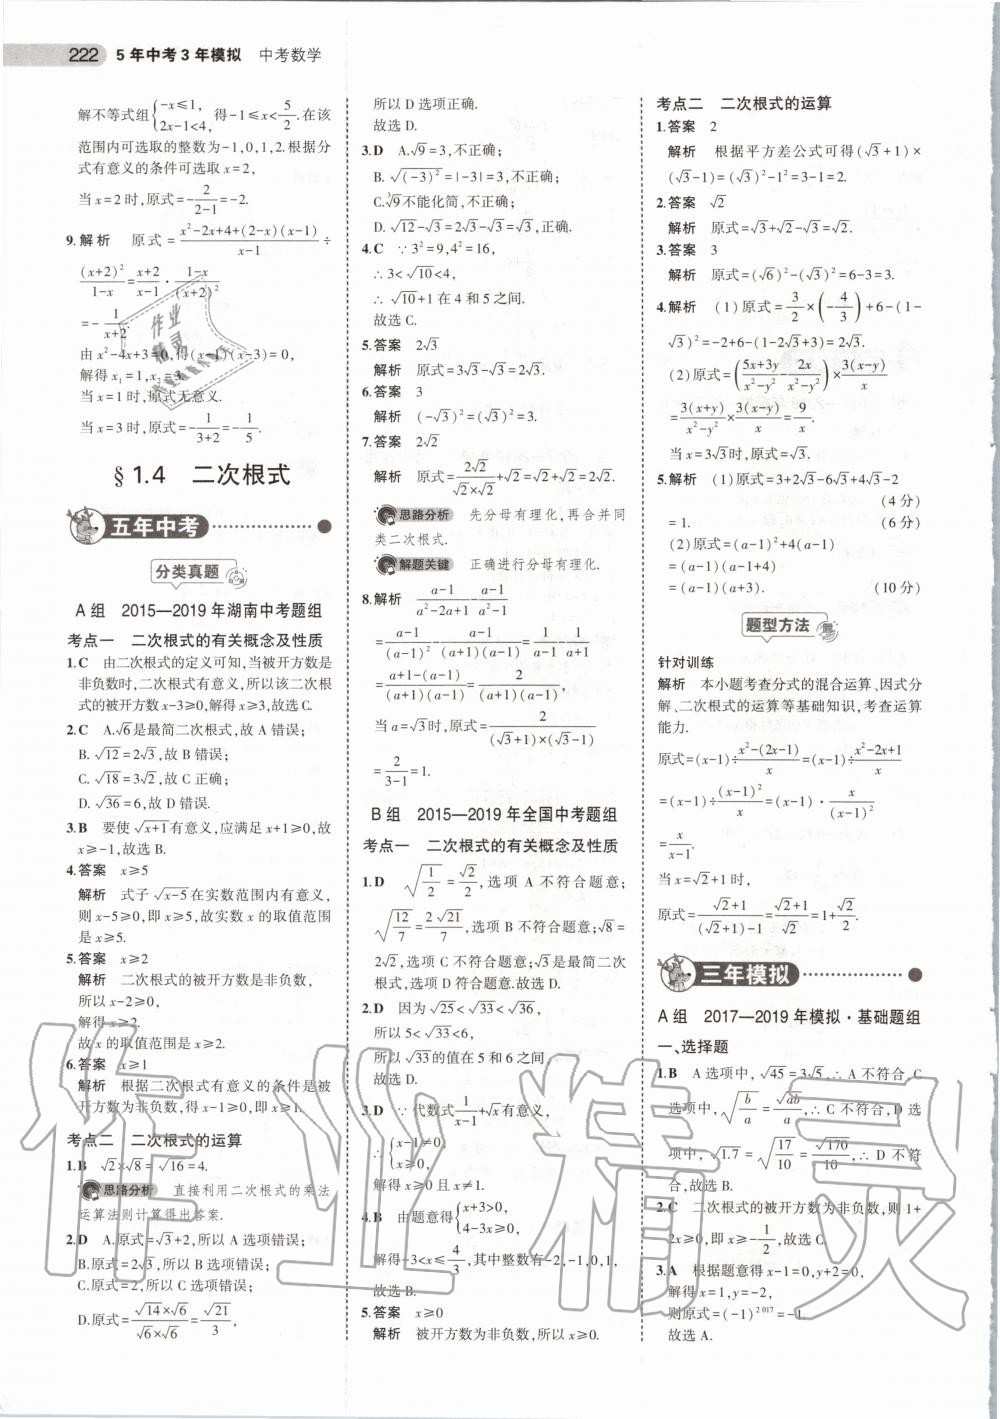 222 5年中考3年模拟 中考数学
解不等式组{-x≤1, 2x-1<4, 得-1≤x<5/2.在该
范围内可选取的整数为-1,0,1,2.根据分
式有意义的条件可选取x=2,
当x=2时,原式=-2/(2-1)=-2.
9.解析 原式=(x²-2x+4+(2-x)(x-1))/(x-1)÷
(x+2)²/(1-x)=(x+2)/(x-1)·(1-x)/(x+2)²
=-1/(x+2).
由x²-4x+3=0,得(x-1)(x-3)=0,
解得x₁=1,x₂=3.
当x=1时,原式无意义.
当x=3时,原式=-1/(3+2)=-1/5.
§1.4 二次根式
五年中考
分类真题
A组 2015—2019年湖南中考题组
考点一 二次根式的有关概念及性质
1.C 由二次根式的定义可知,当被开方数是
非负数时,二次根式有意义,所以该二次根
式的被开方数x-3≥0,解得x≥3,故选C.
2.C A.√6是最简二次根式,故A错误;
B.√12=2√3,故B错误;
C.√18=3√2,故C正确;
D.√36=6,故D错误.
3.B 要使√(x+1)有意义,应满足x+1≥0,故
x≥-1,故选B.
4.答案 x≥5
解析 式子√(x-5)在实数范围内有意义,
则x-5≥0,即x≥5,故实数x的取值范围
是x≥5.
5.答案 x≥2
解析 二次根式的被开方数是非负数,
所以x-2≥0,
解得x≥2.
故x的取值范围是x≥2.
6.答案 x≥1
解析 根据二次根式有意义的条件是被
开方数为非负数,得x-1≥0,即x≥1.
考点二 二次根式的运算
1.B √2×√8=√16=4.
思路分析 直接利用二次根式的乘法
运算法则计算得出答案.
2.D A.原式=√3+2,所以A选项错误;
B.原式=2√3,所以B选项错误;
C.原式=2,所以C选项错误;
D.原式=(√14×√6)/(√6×√6)=√21/3,
所以D选项正确.
故选D.
3.D A.√9=3,不正确;
B.√(-3)²=|-3|=3,不正确;
C.³√9不能化简,不正确;
D.√12-√3=2√3-√3=√3,正确.
4.C ∵3²=9,4²=16,
∴3<√10<4,
∴√10+1在4和5之间.
故选C.
5.答案 2√3
解析 原式=3√3-√3=2√3.
6.答案 3
解析 (-√3)²=(√3)²=3.
7.答案 2√2
解析 原式=2√2/(√2×√2)+√2=√2+√2=2√2.
思路分析 先分母有理化,再合并同
类二次根式.
解题关键 正确进行分母有理化.
8.解析 (a-1)/(a²-2a+1)-(a-1)/(a²-1)
=(a-1)/(a-1)²-(a-1)/((a+1)(a-1))=1/(a-1)-1/(a+1)
=(a+1-(a-1))/((a+1)(a-1))=2/((a+1)(a-1)),
当a=√3时,原式=2/((√3+1)×(√3-1))
=2/(3-1)=1.
B组 2015—2019年全国中考题组
考点一 二次根式的有关概念及性质
1.D √(1/2)=√2/2,选项A不符合题意;
√(12/7)=2√21/7,选项B不符合题意;√8=
2√2,选项C不符合题意;√3是最简二次
根式,选项D符合题意.故选D.
2.D 因为√25<√33<√36,
所以5<√33<6,
所以√33的值在5和6之间.
故选D.
3.D ∵代数式1/(x-1)+√x有意义,
∴{x-1≠0, x≥0.
解得x≥0且x≠1.
4.B 由题意得{x+3>0, 4-3x≥0,
解得-3<x≤4/3,其中整数有-2,-1,0,1.
故选B.
5.答案 x≥0
解析 被开方数为非负数,所以x≥0.
考点二 二次根式的运算
1.答案 2
解析 根据平方差公式可得(√3+1)×
(√3-1)=(√3)²-1²=3-1=2.
2.答案 √2
解析 原式=√3+√2-√3=√2.
3.答案 3
解析 原式=(√6)²-(√3)²=6-3=3.
4.解析 (1)原式=3/2×(-4/3)+6-(1-
√3)²=-2+6-(1-2√3+3)=2√3.
(2)原式=((5x+3y)/(x²-y²)-2x/(x²-y²))×3(x-y)/x
=3(x+y)/(x²-y²)×3(x-y)/x=9/x.
当x=3√3时,原式=√3.
5.解析 (1)原式=3+2√3-6√3+4√3-2
(4分)
=1. (6分)
(2)原式=(a-1)²+4(a-1)
=(a-1)(a-1+4)
=(a-1)(a+3). (10分)
题型方法
针对训练
解析 本小题考查分式的混合运算、因式分
解、二次根式的运算等基础知识,考查运算
能力.
原式=(x-1)÷(x²-(2x-1))/x=(x-1)÷(x²-2x+1)/x
=(x-1)÷(x-1)²/x=(x-1)·x/(x-1)²
=x/(x-1).
当x=√2+1时,
原式=(√2+1)/((√2+1)-1)=(√2+1)/√2=1+√2/2.
三年模拟
A组 2017—2019年模拟·基础题组
一、选择题
1.B A选项中,√45=3√5,∴A不符合,C
选项中,√(b/a)=√ab/a,∴C不符合,D选
项中,√1.7=√(17/10)=√170/10,∴D不符
合,故选B.
2.C 二次根式的被开方数为非负数,则1+
2x≥0,即x≥-1/2,故选C.
3.A 根据题意得x-1=0,y+2=0,
解得x=1,y=-2,
则原式=(-1)²⁰¹⁷=-1.
故选A.
作业精灵